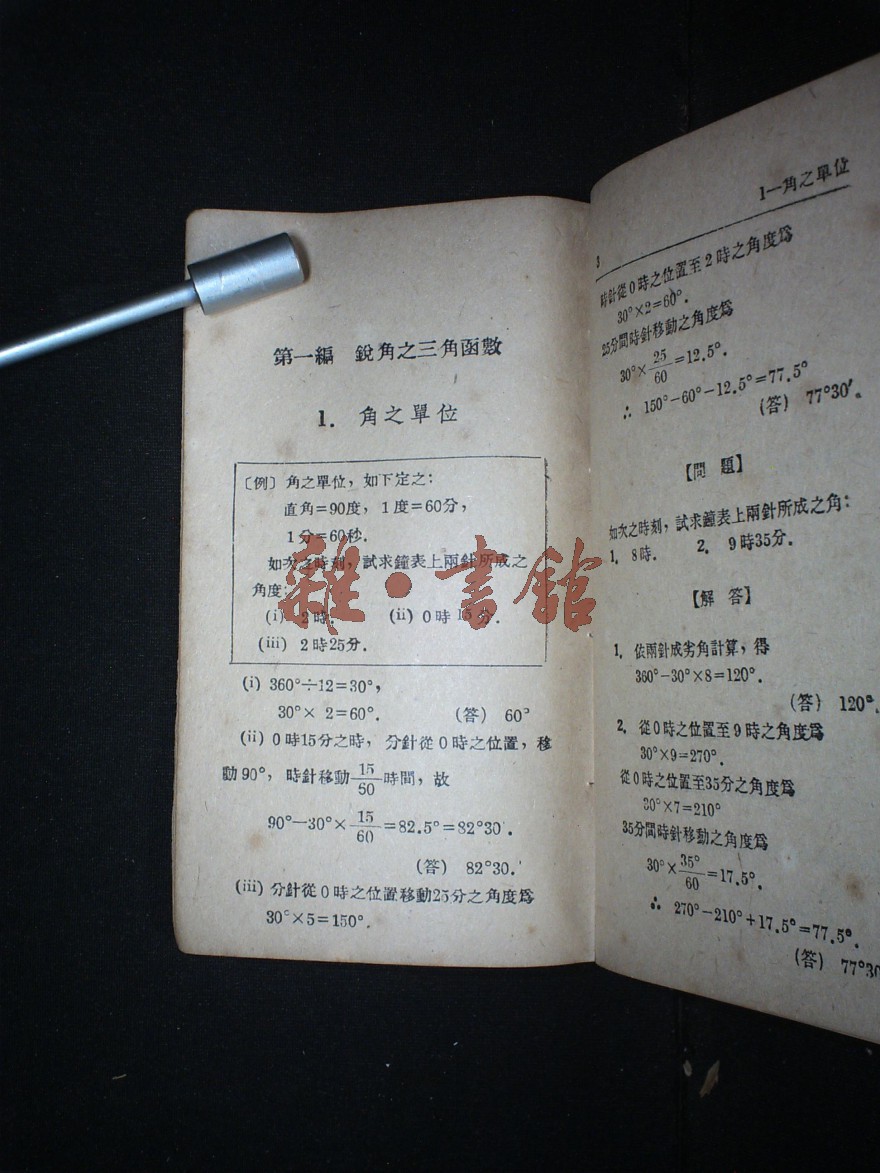 第一編　銳角之三角函數
1.　角之單位
〔例〕角之單位，如下定之：
直角=90度，1度=60分，
1分=60秒.
如次之時刻，試求鐘表上兩針所成之
角度：
(i) 2時.　(ii) 0時15分.
(iii) 2時25分.
(i) 360°÷12=30°，
30°× 2=60°.　(答) 60°
(ii) 0時15分之時，分針從0時之位置，移
動90°，時針移動15/60時間，故
90°−30°×15/60=82.5°=82°30'.
(答) 82°30.'
(iii) 分針從0時之位置移動25分之角度爲
30°×5=150°.
雜·書館
1—角之單位
3
時針從0時之位置至2時之角度爲
30°×2=60°.
25分間時針移動之角度爲
30°×25/60=12.5°.
∴ 150°−60°−12.5°=77.5°
(答) 77°30'.
【問 題】
如次之時刻，試求鐘表上兩針所成之角：
1. 8時.　2. 9時35分.
【解 答】
1. 依兩針成劣角計算，得
360°−30°×8=120°.
(答) 120°.
2. 從0時之位置至9時之角度爲
30°×9=270°.
從0時之位置至35分之角度爲
30°×7=210°
35分間時針移動之角度爲
30°×35°/60=17.5°.
∴ 270°−210°+17.5°=77.5°.
(答) 77°30